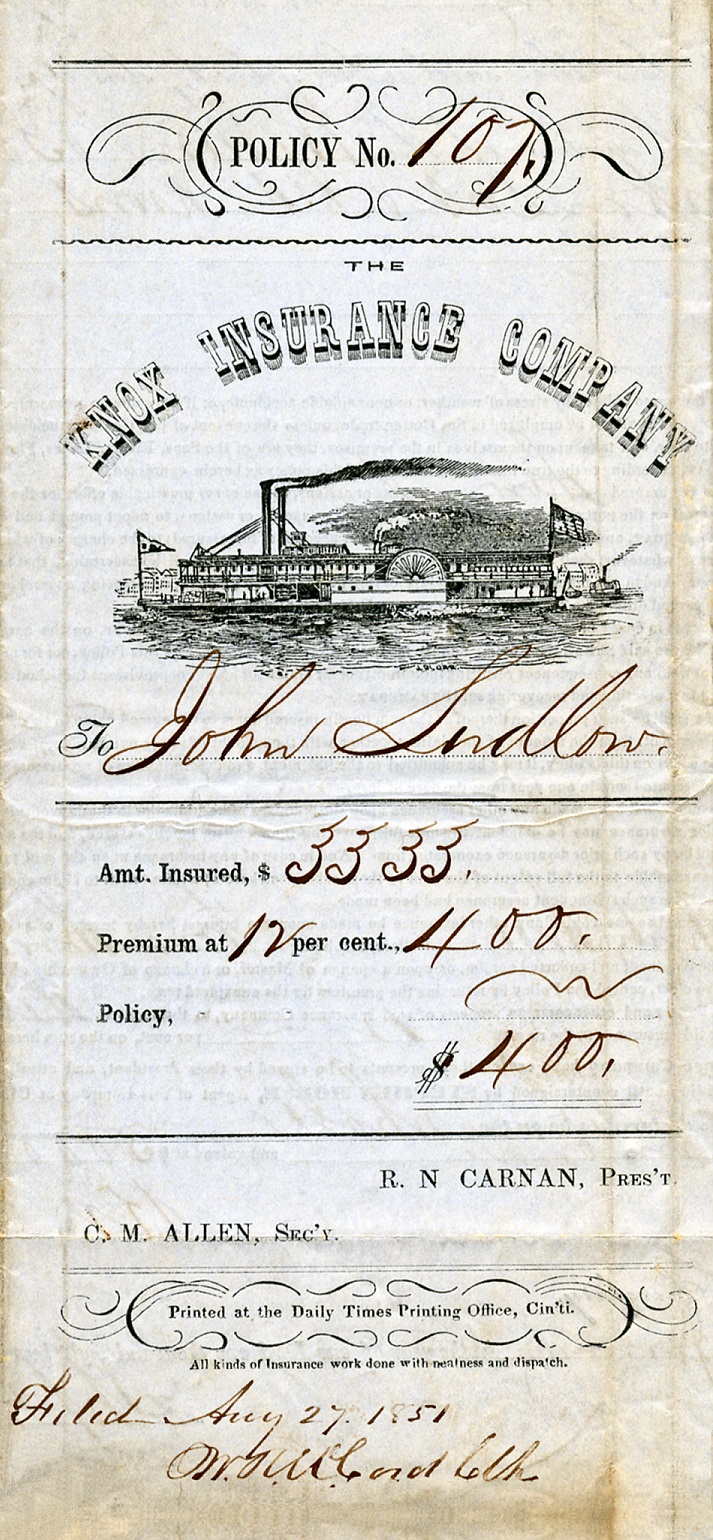 POLICY No. 107.
THE
KNOX INSURANCE COMPANY
To John Ludlow.
Amt. Insured, $ 3333.
Premium at 12 per cent., 400.
Policy,
$ 400.
R. N CARNAN, Pres't.
C. M. ALLEN, Sec'y.
Printed at the Daily Times Printing Office, Cin'ti.
All kinds of Insurance work done with neatness and dispatch.
Filed Aug 27. 1851
Clk